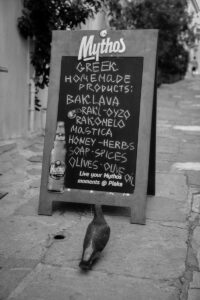 Mythos
GREEK
HOMEMADE
PRODUCTS:
BAKLAVA
RAKI-OYZO
RAKOMELO
MASTICA
HONEY-HERBS
SOAP-SPICES
OLIVES-OLIVE OIL
Live your Mythos
moments @ Plaka